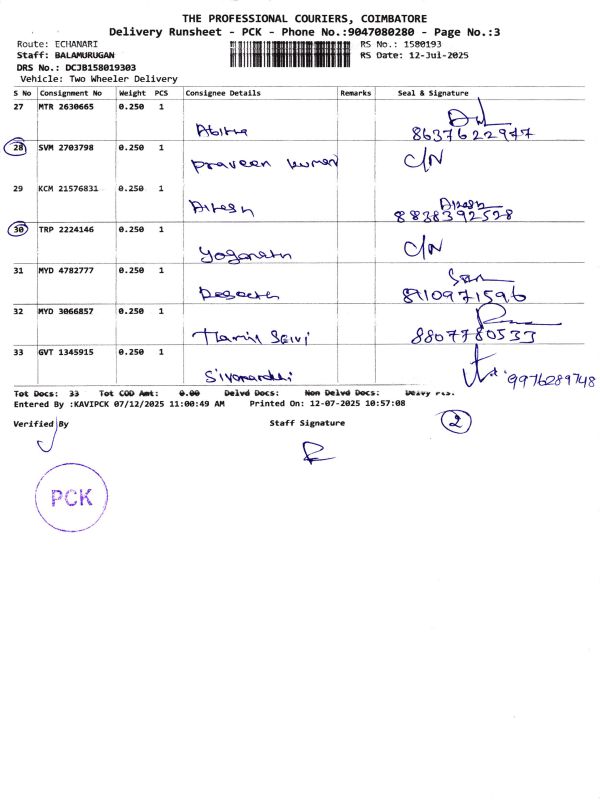 THE PROFESSIONAL COURIERS, COIMBATORE
Delivery Runsheet - PCK - Phone No.:9047080280 - Page No.:3
Route: ECHANARI RS No.: 1580193
Staff: BALAMURUGAN RS Date: 12-Jul-2025
DRS No.: DCJB158019303
Vehicle: Two Wheeler Delivery
S No Consignment No Weight PCS Consignee Details Remarks Seal & Signature
27 MTR 2630665 0.250 1
Abitha 8637622947
28 SVM 2703798 0.250 1
Praveen kumar C/N
29 KCM 21576831 0.250 1
Dinesh Dinesh
8838392528
30 TRP 2224146 0.250 1
Yoganath C/N
31 MYD 4782777 0.250 1
8910971596
32 MYD 3066857 0.250 1
Tamil Selvi 8807780533
33 GVT 1345915 0.250 1
9976289748
Tot Docs: 33 Tot COD Amt: 0.00 Delvd Docs: Non Delvd Docs:
Entered By :KAVIPCK 07/12/2025 11:00:49 AM Printed On: 12-07-2025 10:57:08
Verified By Staff Signature 2
PCK